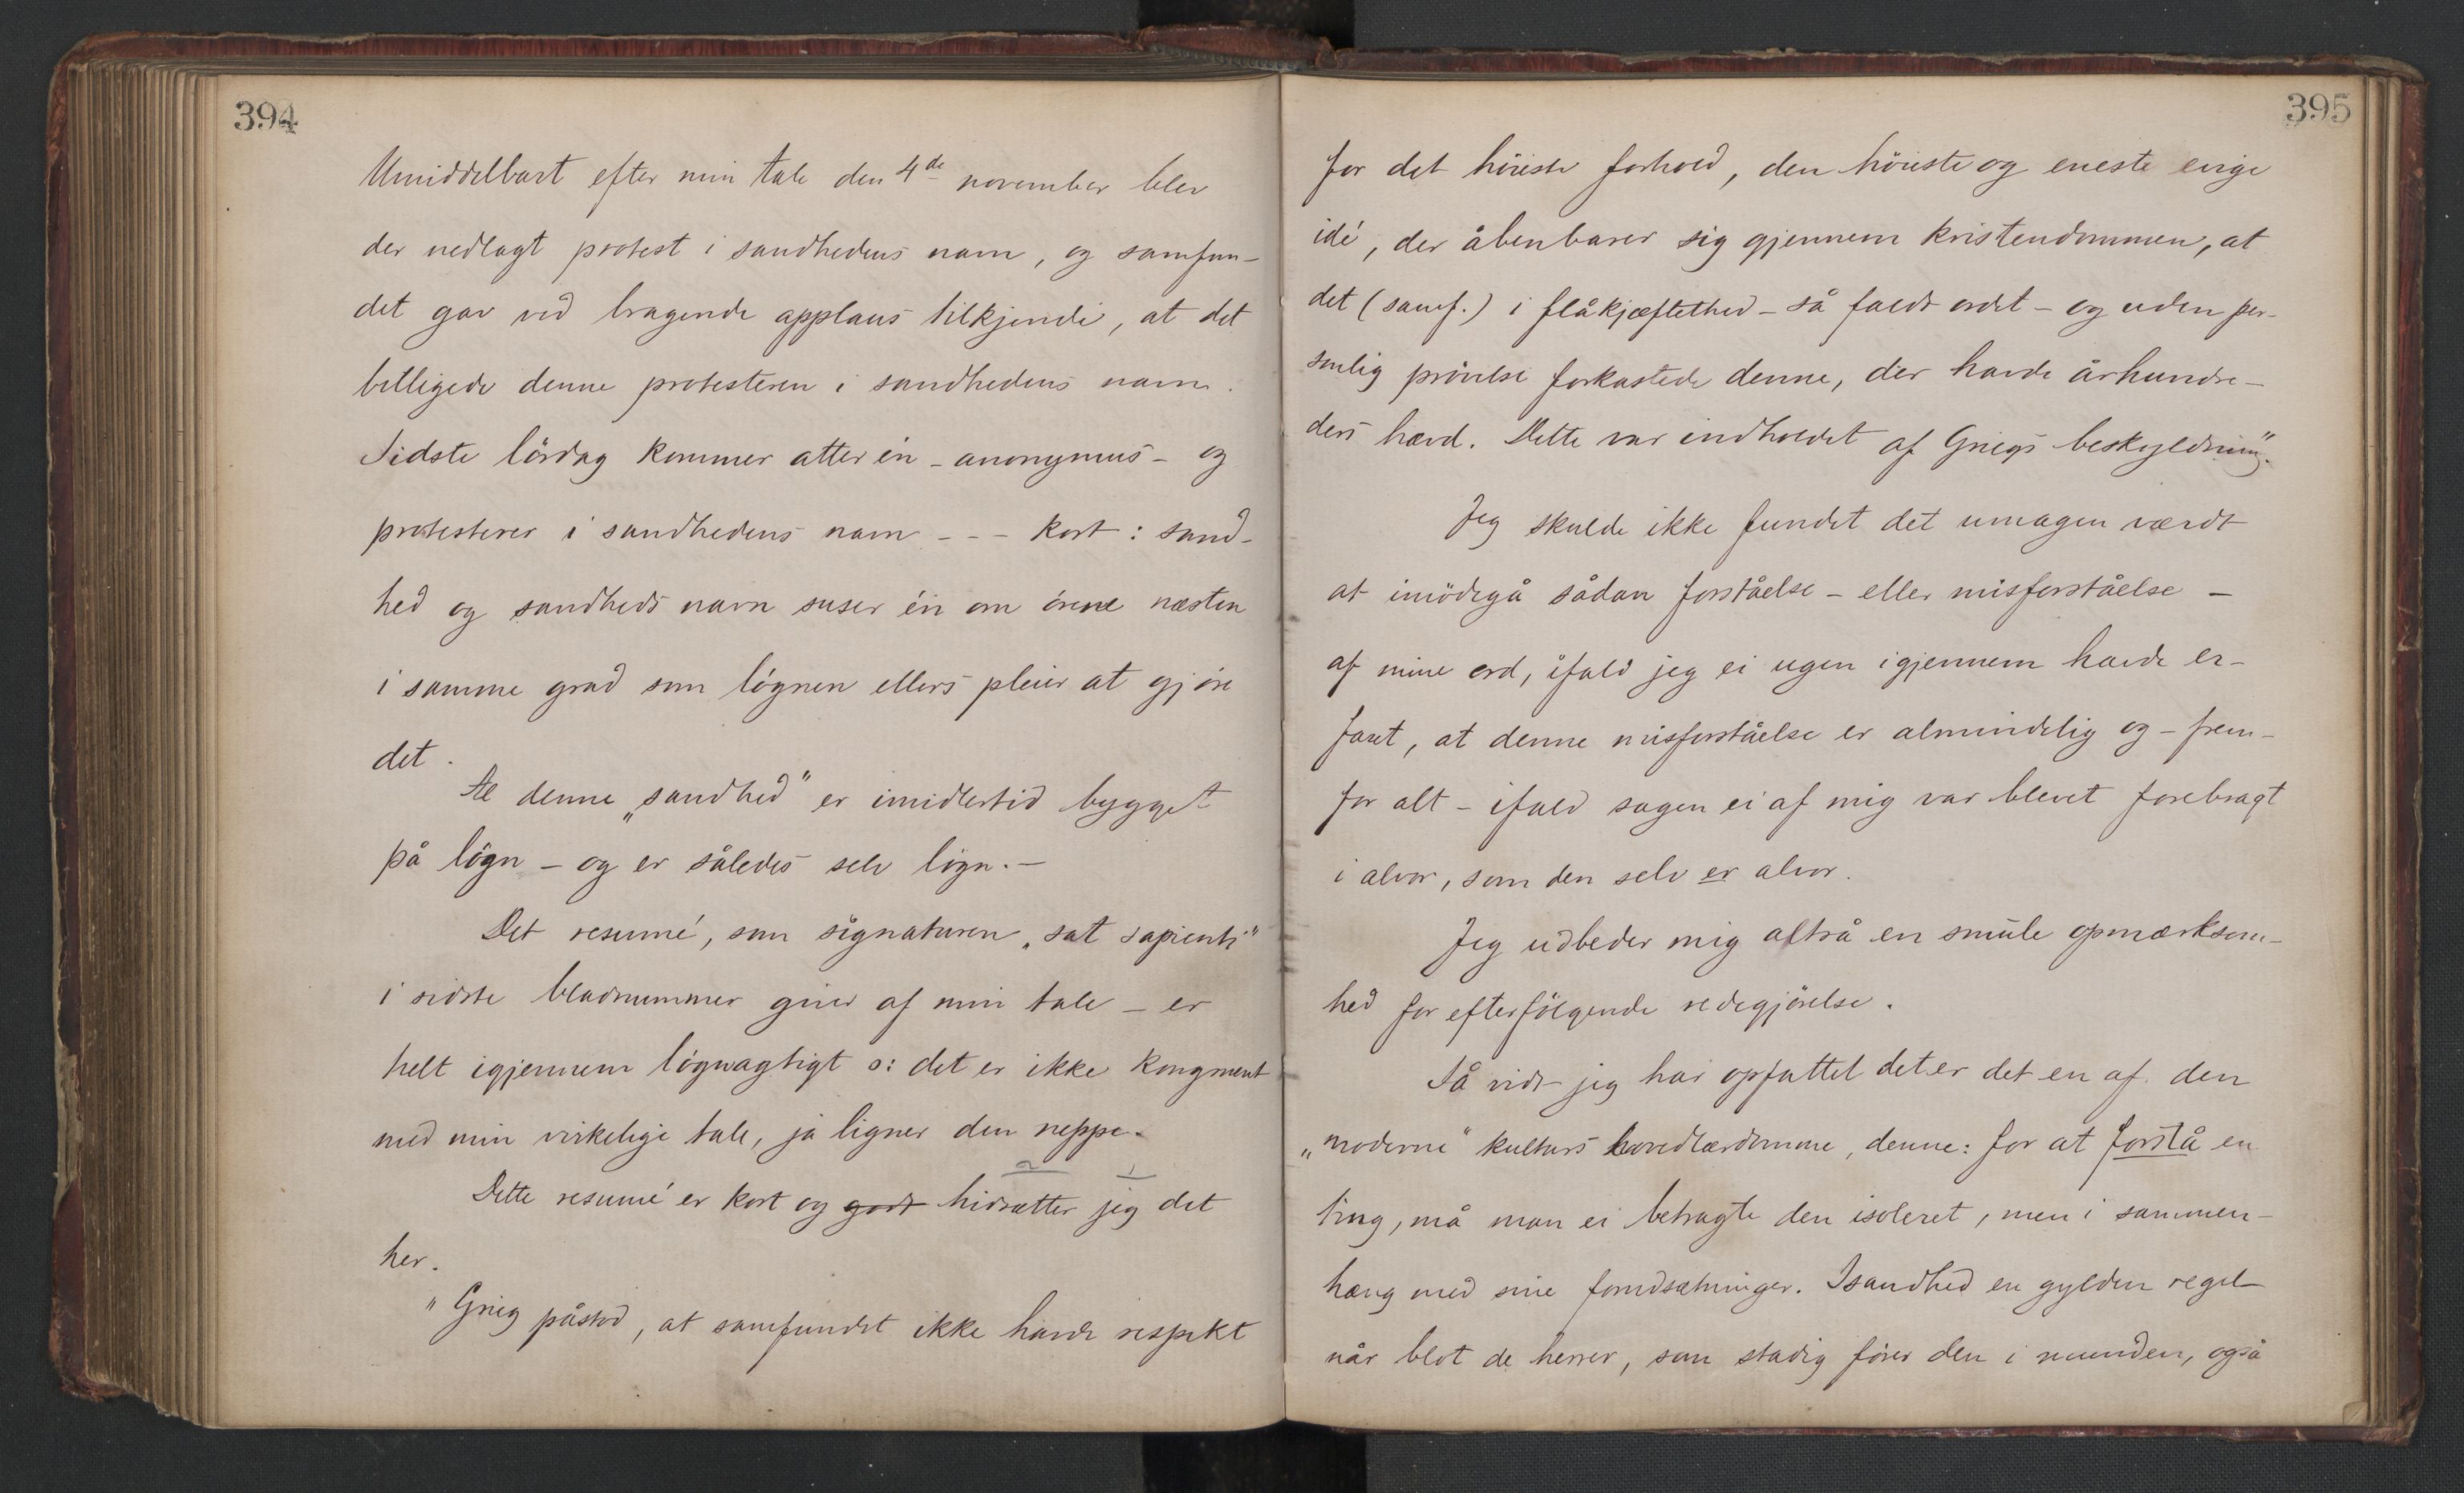 394
Umiddelbart efter min tale den 4de november blev
der nedlagt protest i sandhedens navn, og samfun-
det gav ved bragende applaus tilkjende, at det
billigede denne protesteren i sandhedens navn.
Sidste lördag kommer atter én - anonymus - og
protesterer i sandhedens navn - - - kort: sand-
hed og sandheds navn suser én om örene næsten
i samme grad som lögnen ellers pleier at gjöre
det.
Al denne „sandhed" er imidlertid bygget
på lögn - og er således selv lögn. -
Det resumé, som signaturen „sat sapienti"
i sidste bladnummer giver af min tale - er
helt igjennem lögnagtigt ɔ: det er ikke kongruent
med min virkelige tale, ja ligner den neppe.
Dette resumé er kort og godt hidsætter jeg det
her.
"Grieg påstod, at samfundet ikke havde respekt
395
for det höieste forhold, den höieste og eneste evige
idé, der åbenbarer sig gjennem kristendommen, at
det (samf.) i flåkjæftethed - så faldt ordet - og uden per-
sonlig prövelse forkastede denne, der havde århundre-
ders hævd. Dette var indholdet af Griegs beskyldning".
Jeg skulde ikke fundet det umagen værdt
at imödegå sådan forståelse - eller misforståelse -
af mine ord, ifald jeg ei ugen igjennem havde er-
faret, at denne misforståelse er almindelig og - frem-
for alt - ifald sagen ei af mig var blevet forebragt
i alvor, som den selv er alvor.
Jeg udbeder mig altså en smule opmærksom-
hed for efterfölgende redegjörelse.
Så vidt jeg har opfattet det er det en af den
„moderne" kulturs hovedlærdomme, denne: for at forstå en
ting, må man ei betragte den isoleret, men i sammen-
hæng med sine forudsætninger. Isandhed en gylden regel
når blot de herrer, som stadig förer den i munden, også